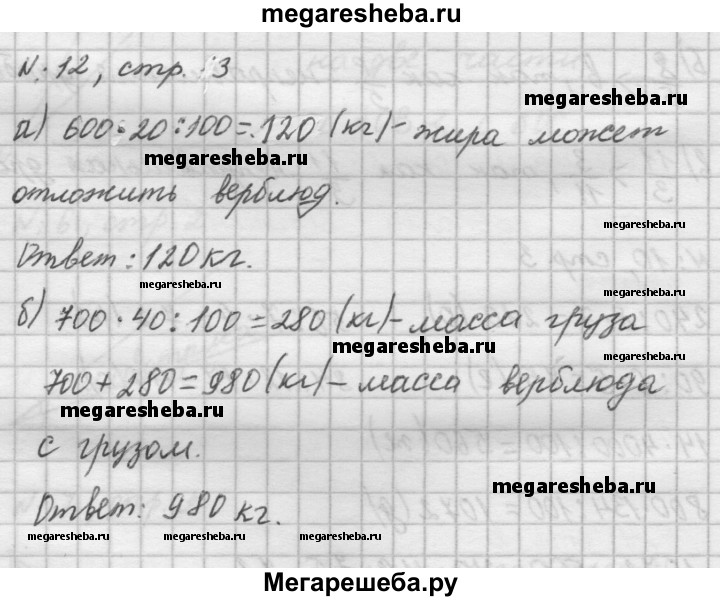 megaresheba.ru
№ 12, стр. 3
а) 600 · 20 : 100 = 120 (кг) - жира может
megaresheba.ru
megaresheba.ru
отложить верблюд.
megaresheba.ru
Ответ: 120 кг.
megaresheba.ru
megaresheba.ru
б) 700 · 40 : 100 = 280 (кг) - масса груза
megaresheba.ru
megaresheba.ru
700 + 280 = 980 (кг) - масса верблюда
megaresheba.ru
с грузом.
megaresheba.ru
Ответ: 980 кг.
megaresheba.ru
megaresheba.ru
megaresheba.ru
Мегарешеба.ру